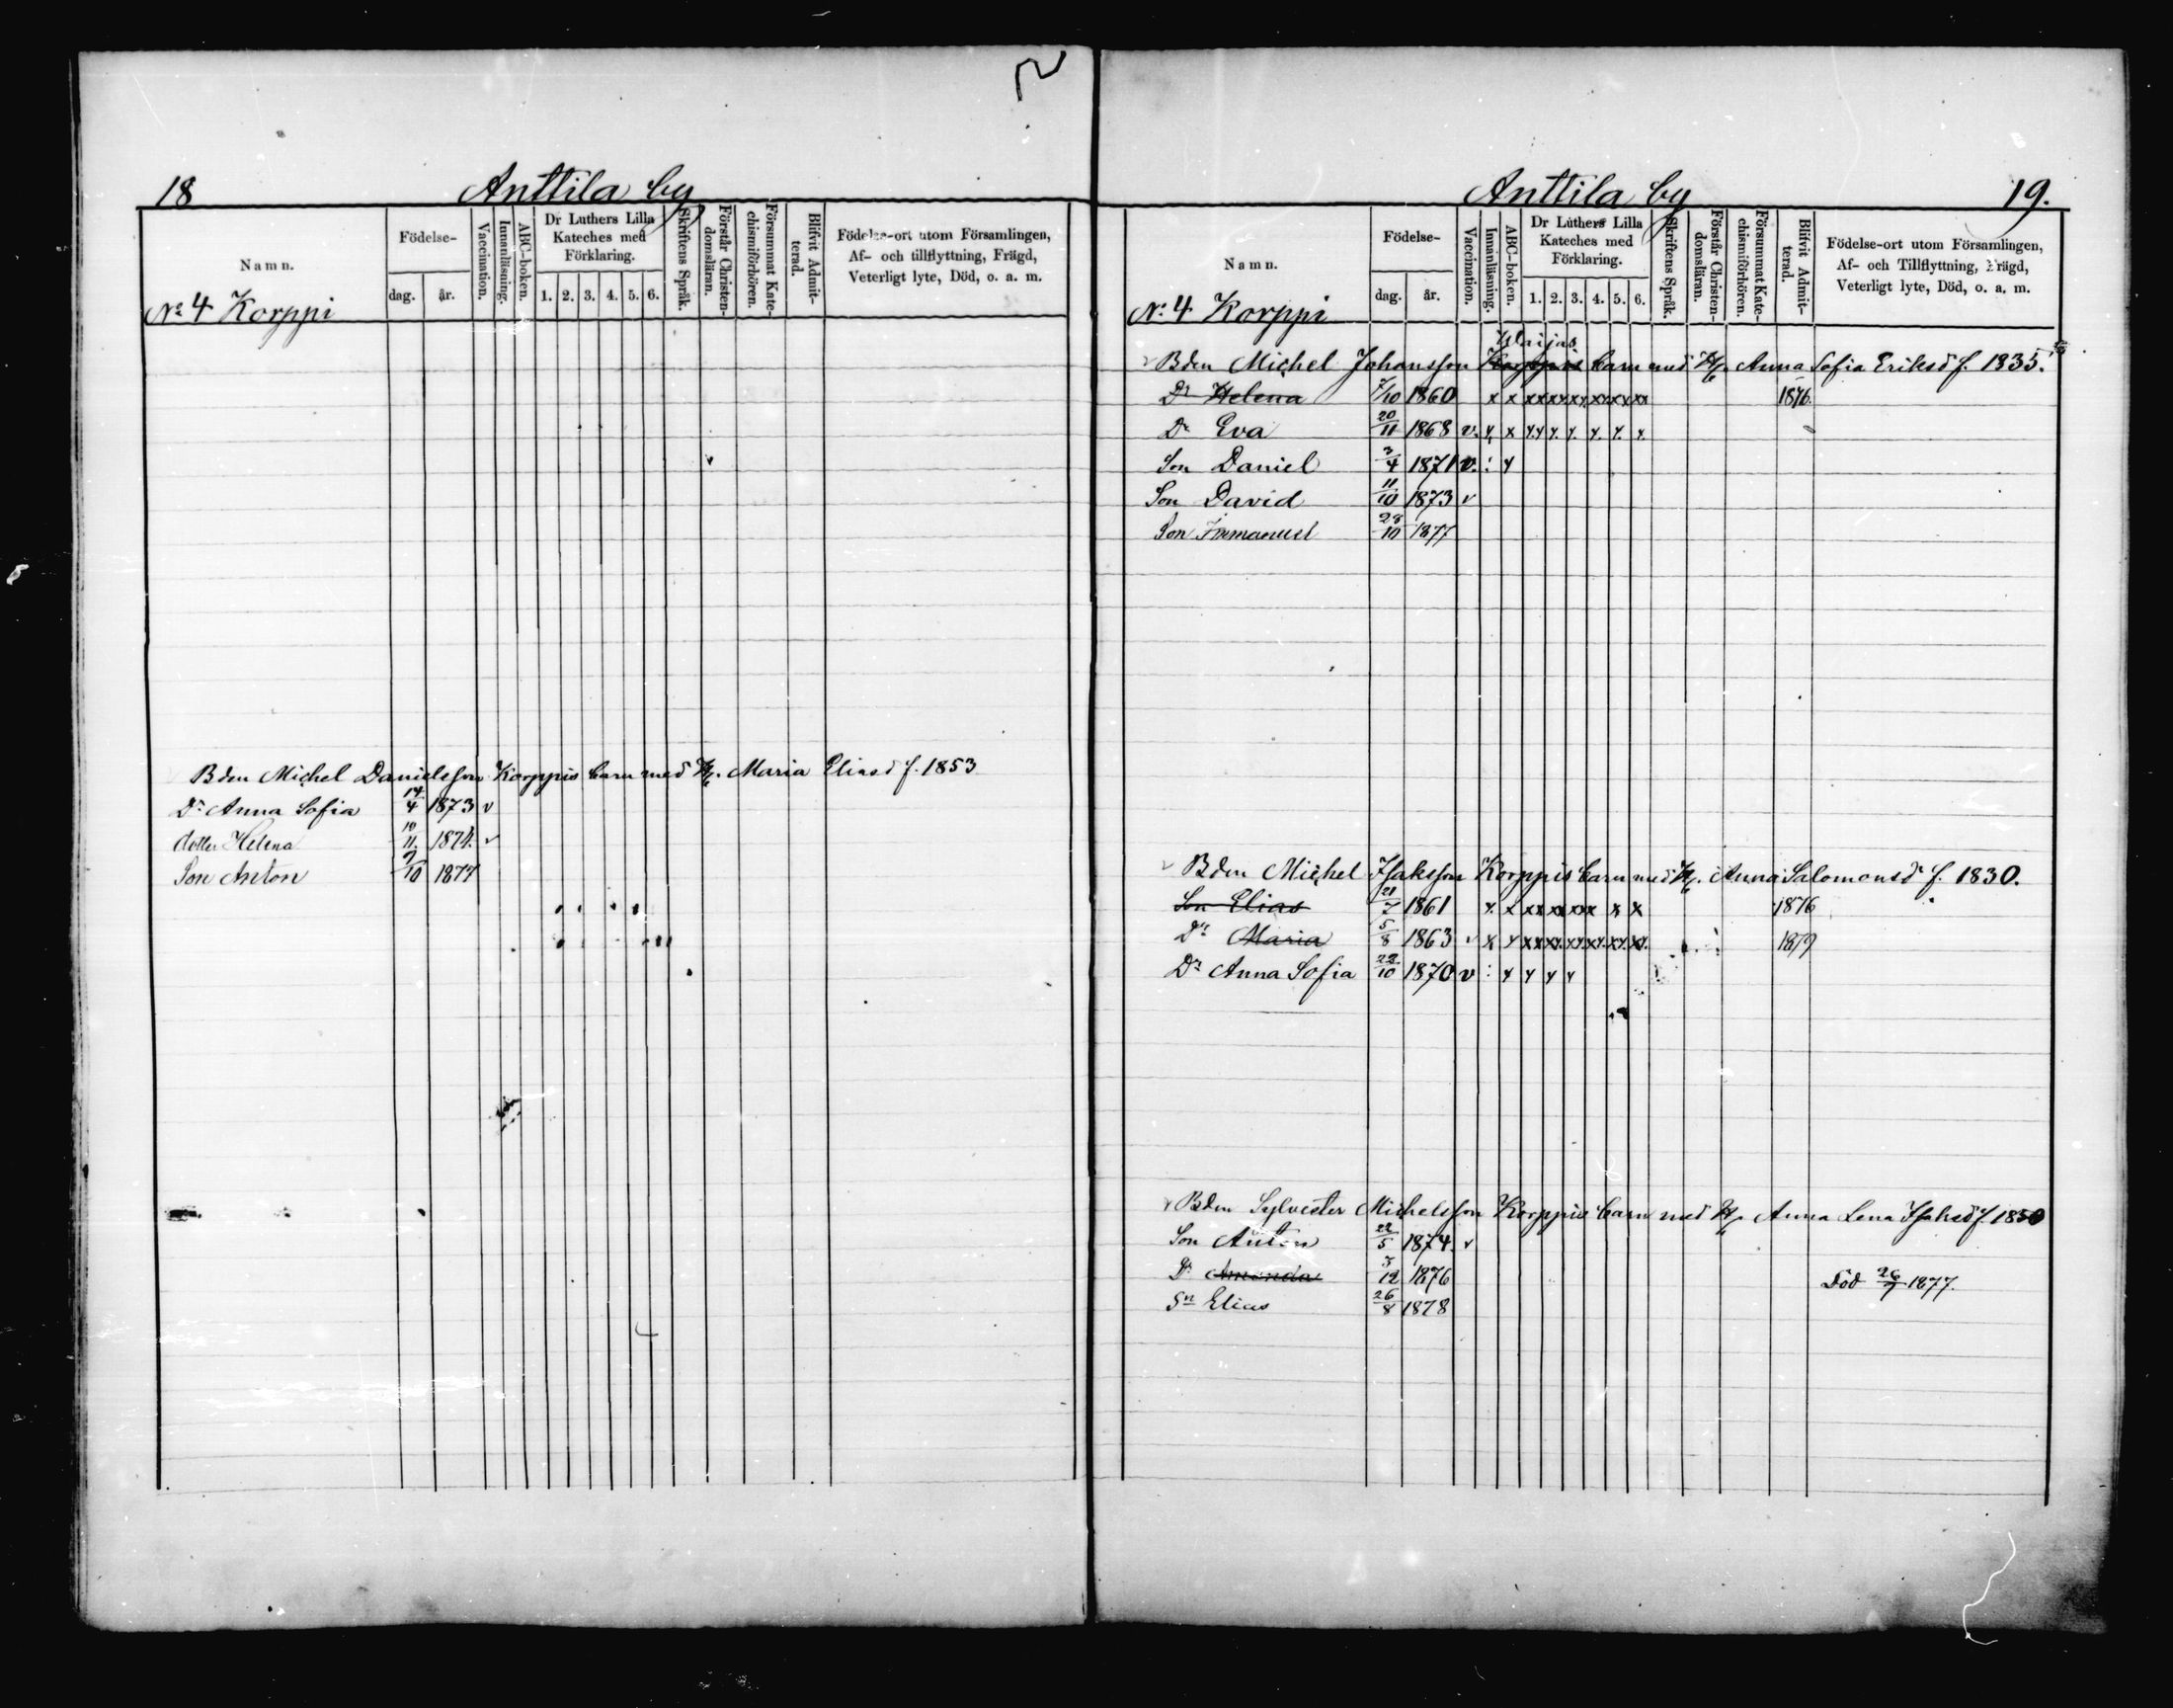 18 Anttila by
Namn.
Födelse-
dag. år.
Vaccination.
Innanläsning.
ABC-boken.
Dr Luthers Lilla Kateches med Förklaring.
1. 2. 3. 4. 5. 6.
Skriftens Språk.
Förstår Christen-domsläran.
Försummat Kate-chismiförhören.
Blifvit Admit-terad.
Födelse-ort utom Församlingen,
Af- och tillflyttning, Frägd,
Veterligt lyte, Död, o. a. m.
No 4 Korppi
Bden Michel Danielsson Korppis barn med H. Maria Eliasd f. 1853
Dr Anna Sofia 14/4 1873 v
dotter Helena 10/11. 1874. v
Son Anton 9/10 1877
Anttila by 19.
Namn.
Födelse-
dag. år.
Vaccination.
Innanläsning.
ABC-boken.
Dr Luthers Lilla Kateches med Förklaring.
1. 2. 3. 4. 5. 6.
Skriftens Språk.
Förstår Christen-domsläran.
Försummat Kate-chismiförhören.
Blifvit Admit-terad.
Födelse-ort utom Församlingen,
Af- och Tillflyttning, Frägd,
Veterligt lyte, Död, o. a. m.
No 4 Korppi
Bden Michel Johansson Korppis barn med H. Anna Sofia Eriksd f. 1835.
Dr Helena 7/10 1860 x x xx xx xx xx xx xx 1876.
Dr Eva 20/11 1868 v. x x xx x x x x x
Son Daniel 3/4 1871 v. : x
Son David 11/10 1873 v
Son Immanuel 28/10 1877
Bden Michel Isaksson Korppis barn med H. Anna Salomonsdr f. 1830.
Son Elias 21/7 1861 x x xx xx xx x x 1876
Dr Maria 5/8 1863 v x x xx xx xx xx xx xx 1879
Dr Anna Sofia 28/10 1870 v : x x x x
Bden Sylvester Michelsson Korppis barn med H. Anna Lena Isaksd f. 1850
Son Anton 22/5 1874. v
Dr Amanda 3/12 1876 Död 26/7 1877.
Sn Elias 26/8 1878